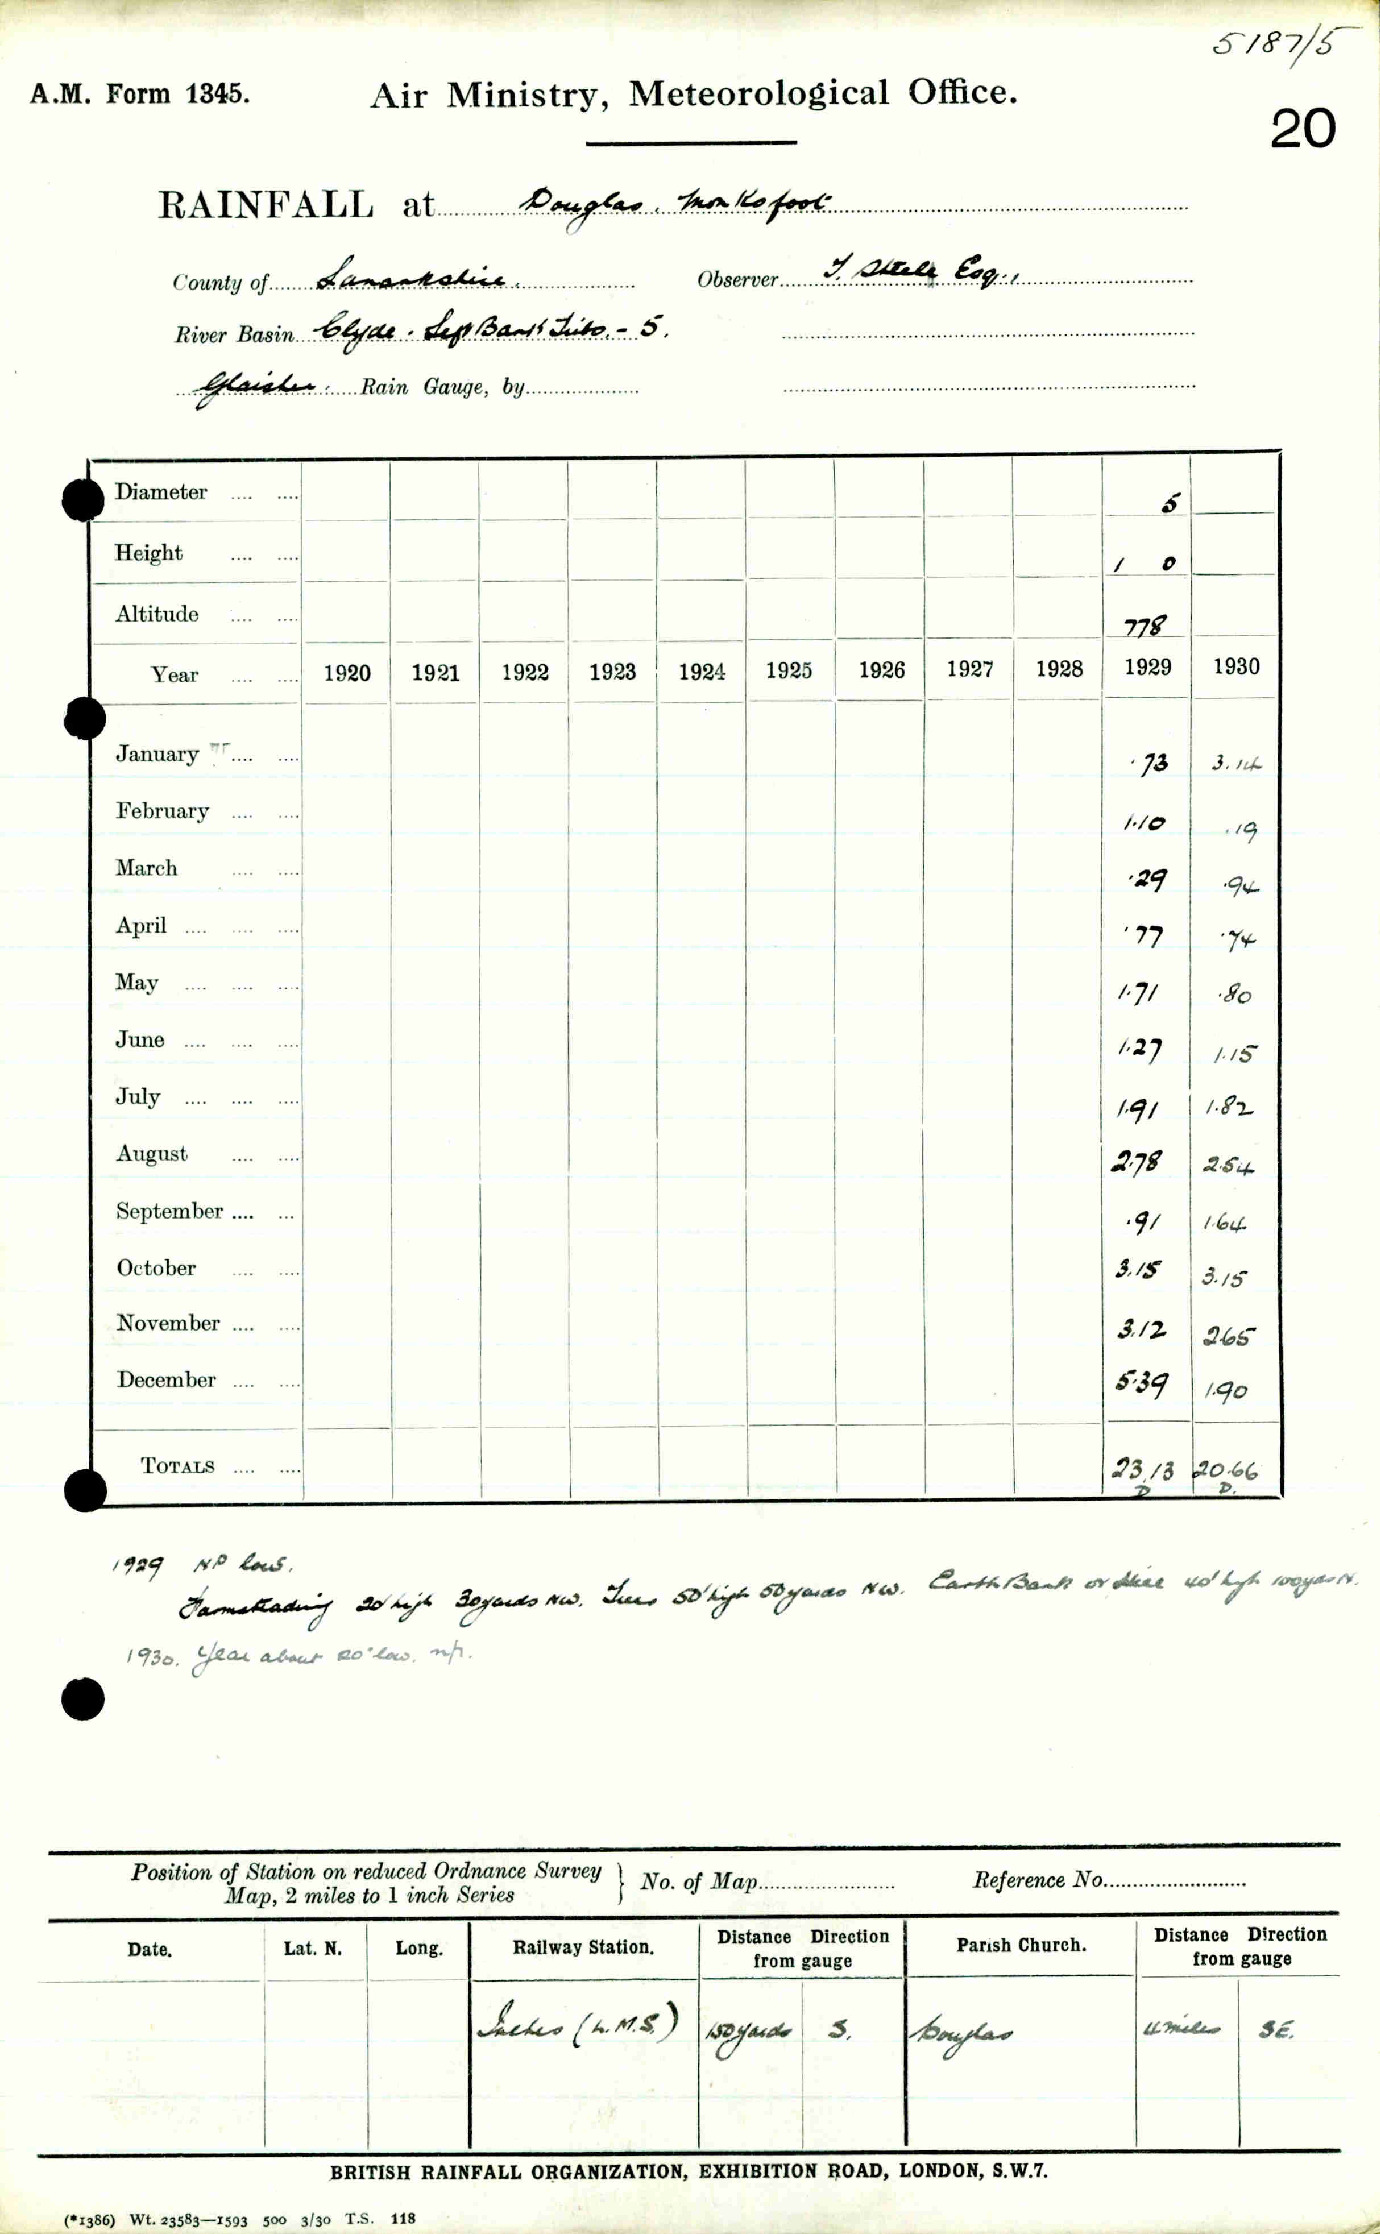 5187/5
A.M. Form 1345. Air Ministry, Meteorological Office.
20
RAINFALL at Douglas, Monksfoot
County of Lanarkshire. Observer T. Steele Esq.,
River Basin Clyde. Left Bank Tribs. - 5.
Glaisher. Rain Gauge, by
Diameter 5
Height 1 0
Altitude 778
Year 1920 1921 1922 1923 1924 1925 1926 1927 1928 1929 1930
January .73 3.14
February 1.10 .19
March .29 .94
April .77 .74
May 1.71 .80
June 1.27 1.15
July 1.91 1.82
August 2.78 2.54
September .91 1.64
October 3.15 3.15
November 3.12 2.65
December 5.39 1.90
TOTALS 23.13 20.66
D D.
1929 NP low.
Farmsteading 20' high 30 yards NW. Trees 50' high 50 yards NW. Earth Bank or 40' high 100 yds N.
1930. Year about 20" low. n/p.
Position of Station on reduced Ordnance Survey } No. of Map Reference No.
Map, 2 miles to 1 inch Series
Date. Lat. N. Long. Railway Station. Distance Direction from gauge Parish Church. Distance Direction from gauge
Inches (L.M.S.) 150 yards S. Douglas 4 miles SE.
BRITISH RAINFALL ORGANIZATION, EXHIBITION ROAD, LONDON, S.W.7.
(*1386) Wt. 23583—1593 500 3/30 T.S. 118